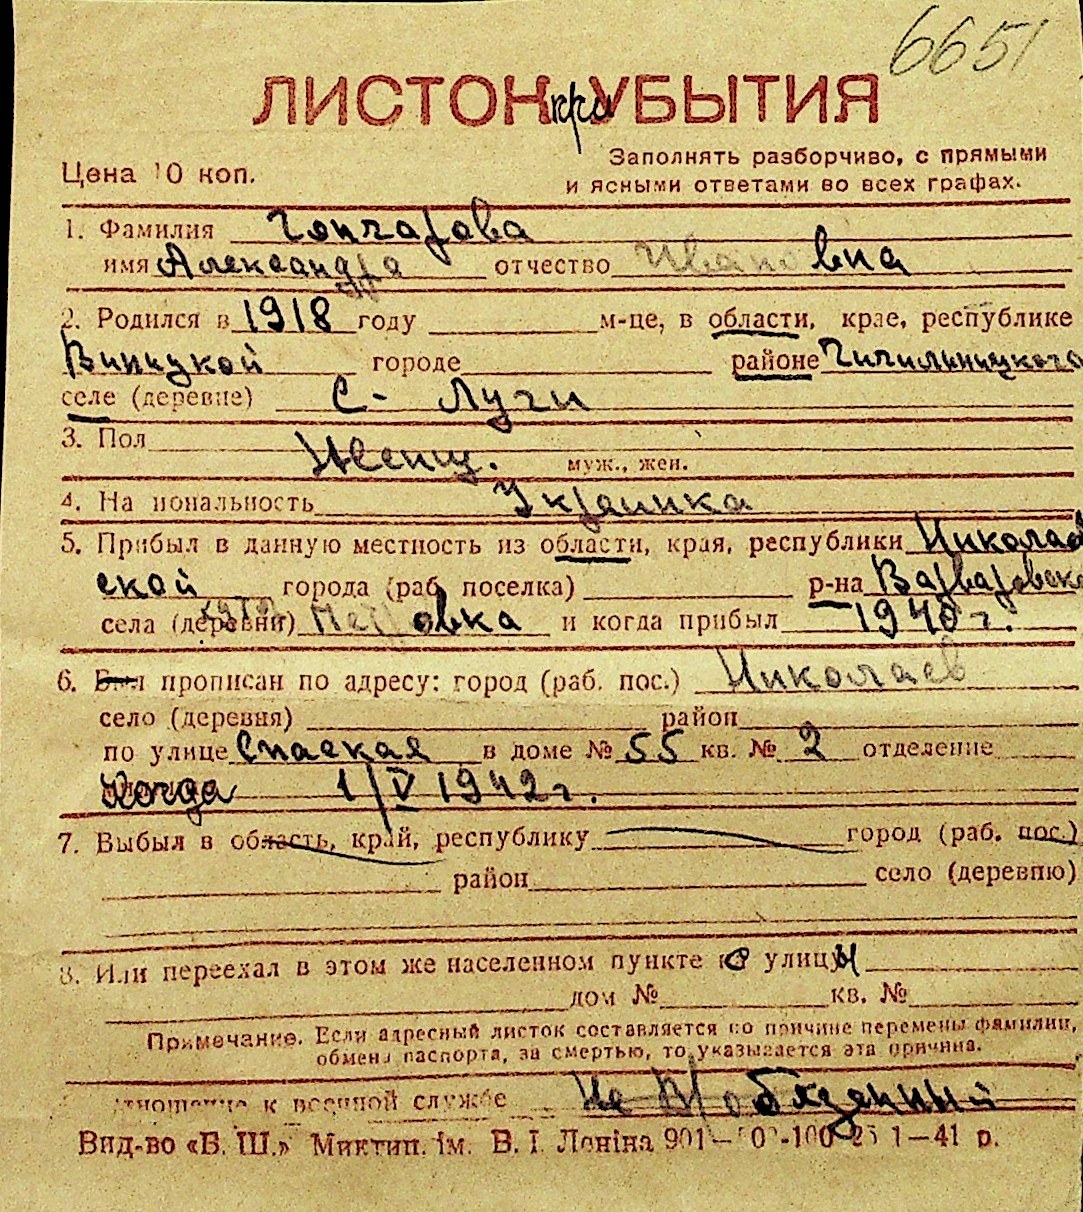 6651
ЛИСТОК при УБЫТИЯ
Цена 10 коп.
Заполнять разборчиво, с прямыми
и ясными ответами во всех графах.
1. Фамилия Гончарова
имя Александра отчество Ивановна
2. Родился в 1918 году м-це, в области, крае, республике
Виницкой городе районе Чичильницкого
селе (деревне) С- Луги
3. Пол Женщ. муж., жен.
4. Национальность Украинка
5. Прибыл в данную местность из области, края, республики Николаев
ской города (раб. поселка) р-на Варваровск
села (деревни) овка и когда прибыл 1940 г.
6. Был прописан по адресу: город (раб. пос.) Николаев
село (деревня) район
по улице Спаская в доме № 55 кв. № 2 отделение
Когда 1/V 1942 г.
7. Выбыл в область, край, республику город (раб. пос.)
район село (деревню)
8. Или переехал в этом же населенном пункте с улицы
дом № кв. №
Примечание. Если адресный листок составляется по причине перемены фамилии,
обмена паспорта, за смертью, то указывается эта причина.
отношение к военной службе Не В/обязанный
Вид-во «Б. Ш.» Миктип. ім. В. І. Леніна 901— -100 25 1—41 р.